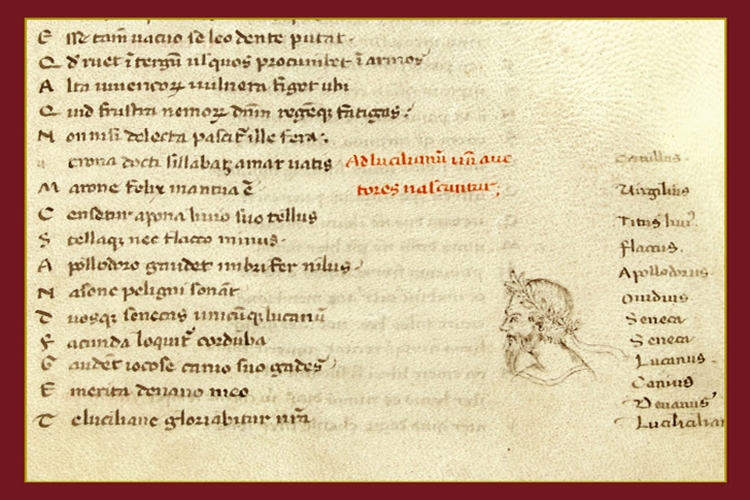 E sse tam̄ uacuo se leo dente putat.
Q d' ruet ī tergū uł quos procumbet ī armos
A lta iuuencoꝝ uulnera figet ubi
Q uid frustra nemoꝝ dn̄m regēqꝫ fatigas:
N on nisi delecta pascit᷑ ille fera:.
u erona docti sillabas amat uatis
M arone felix mantua ē
C ensetur apona liuio suo tellus
S tellaqꝫ nec flacco minus.
A pollodoro gaudet imbrifer nilus.
N asone peligni sonāt
D uosqꝫ senecas unicūqꝫ lucanū
F acunda loquit᷑ corduba
G audēt iocose canio suo gades
E merita deuano meo
T e luciliane gloriabitur nr̄a
Ad lucilianū un̄ auc
tores nascuntur;
Catullus.
Uirgilius
Titus liui'.
flaccus.
Apollodorus
Ouidius.
Seneca
Seneca
Lucanus.
Canius
Deuanus'
Lucilian